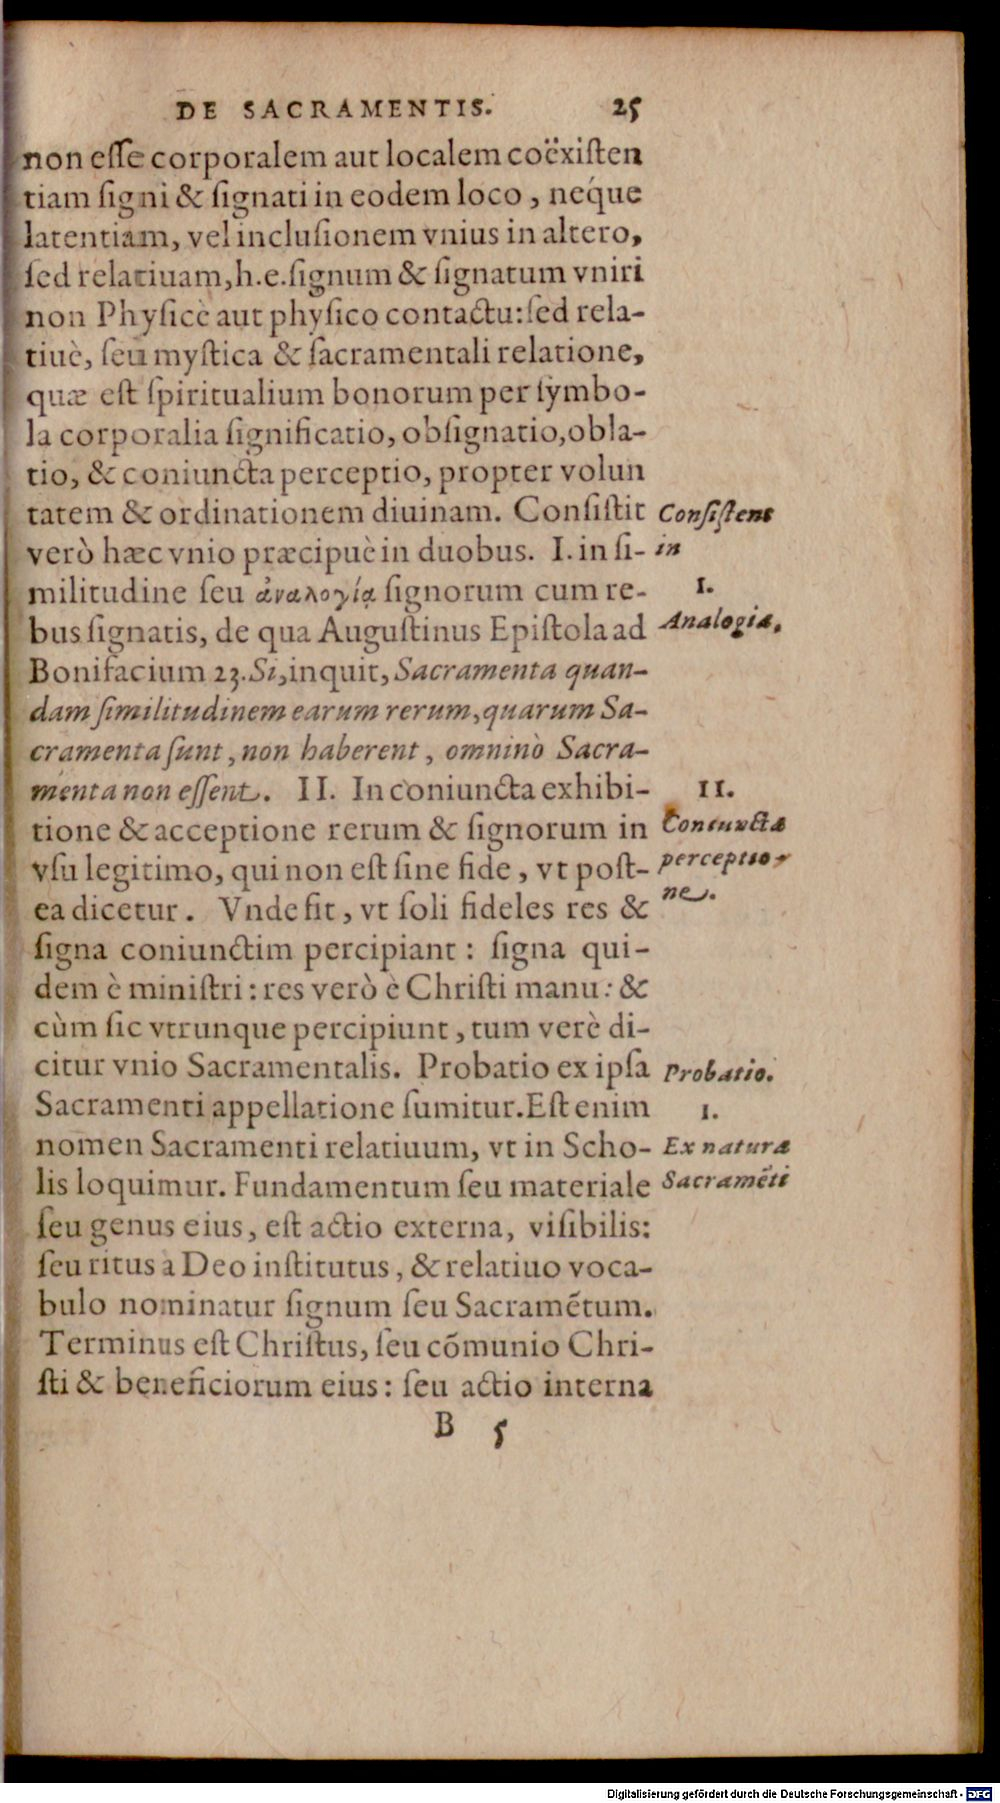 DE SACRAMENTIS. 25
non eſſe corporalem aut localem coëxiſten
tiam ſigni & ſignati in eodem loco, néque
latentiam, vel incluſionem vnius in altero,
ſed relatiuam, h.e. ſignum & ſignatum vniri
non Phyſicè aut phyſico contactu: ſed rela-
tiuè, ſeu myſtica & ſacramentali relatione,
quæ eſt ſpiritualium bonorum per ſymbo-
la corporalia ſignificatio, obſignatio, obla-
tio, & coniuncta perceptio, propter volun
tatem & ordinationem diuinam. Conſiſtit
verò hæc vnio præcipuè in duobus. I. in ſi-
militudine ſeu ἀναλογίᾳ ſignorum cum re-
bus ſignatis, de qua Auguſtinus Epiſtola ad
Bonifacium 23. Si, inquit, Sacramenta quan-
dam ſimilitudinem earum rerum, quarum Sa-
cramenta ſunt, non haberent, omninò Sacra-
menta non eſſent. II. In coniuncta exhibi-
tione & acceptione rerum & ſignorum in
vſu legitimo, qui non eſt ſine fide, vt poſt-
ea dicetur. Vnde fit, vt ſoli fideles res &
ſigna coniunctim percipiant: ſigna qui-
dem è miniſtri: res verò è Chriſti manu: &
cùm ſic vtrunque percipiunt, tum verè di-
citur vnio Sacramentalis. Probatio ex ipſa
Sacramenti appellatione ſumitur. Eſt enim
nomen Sacramenti relatiuum, vt in Scho-
lis loquimur. Fundamentum ſeu materiale
ſeu genus eius, eſt actio externa, viſibilis:
ſeu ritus à Deo inſtitutus, & relatiuo voca-
bulo nominatur ſignum ſeu Sacramẽtum.
Terminus eſt Chriſtus, ſeu cõmunio Chri-
ſti & beneficiorum eius: ſeu actio interna
B 5
Conſiſtens
in
I.
Analogia,
II.
Coniuncta
perceptio-
ne.
Probatio.
I.
Ex natura
Sacramẽti
Digitalisierung gefördert durch die Deutsche Forschungsgemeinschaft - DFG